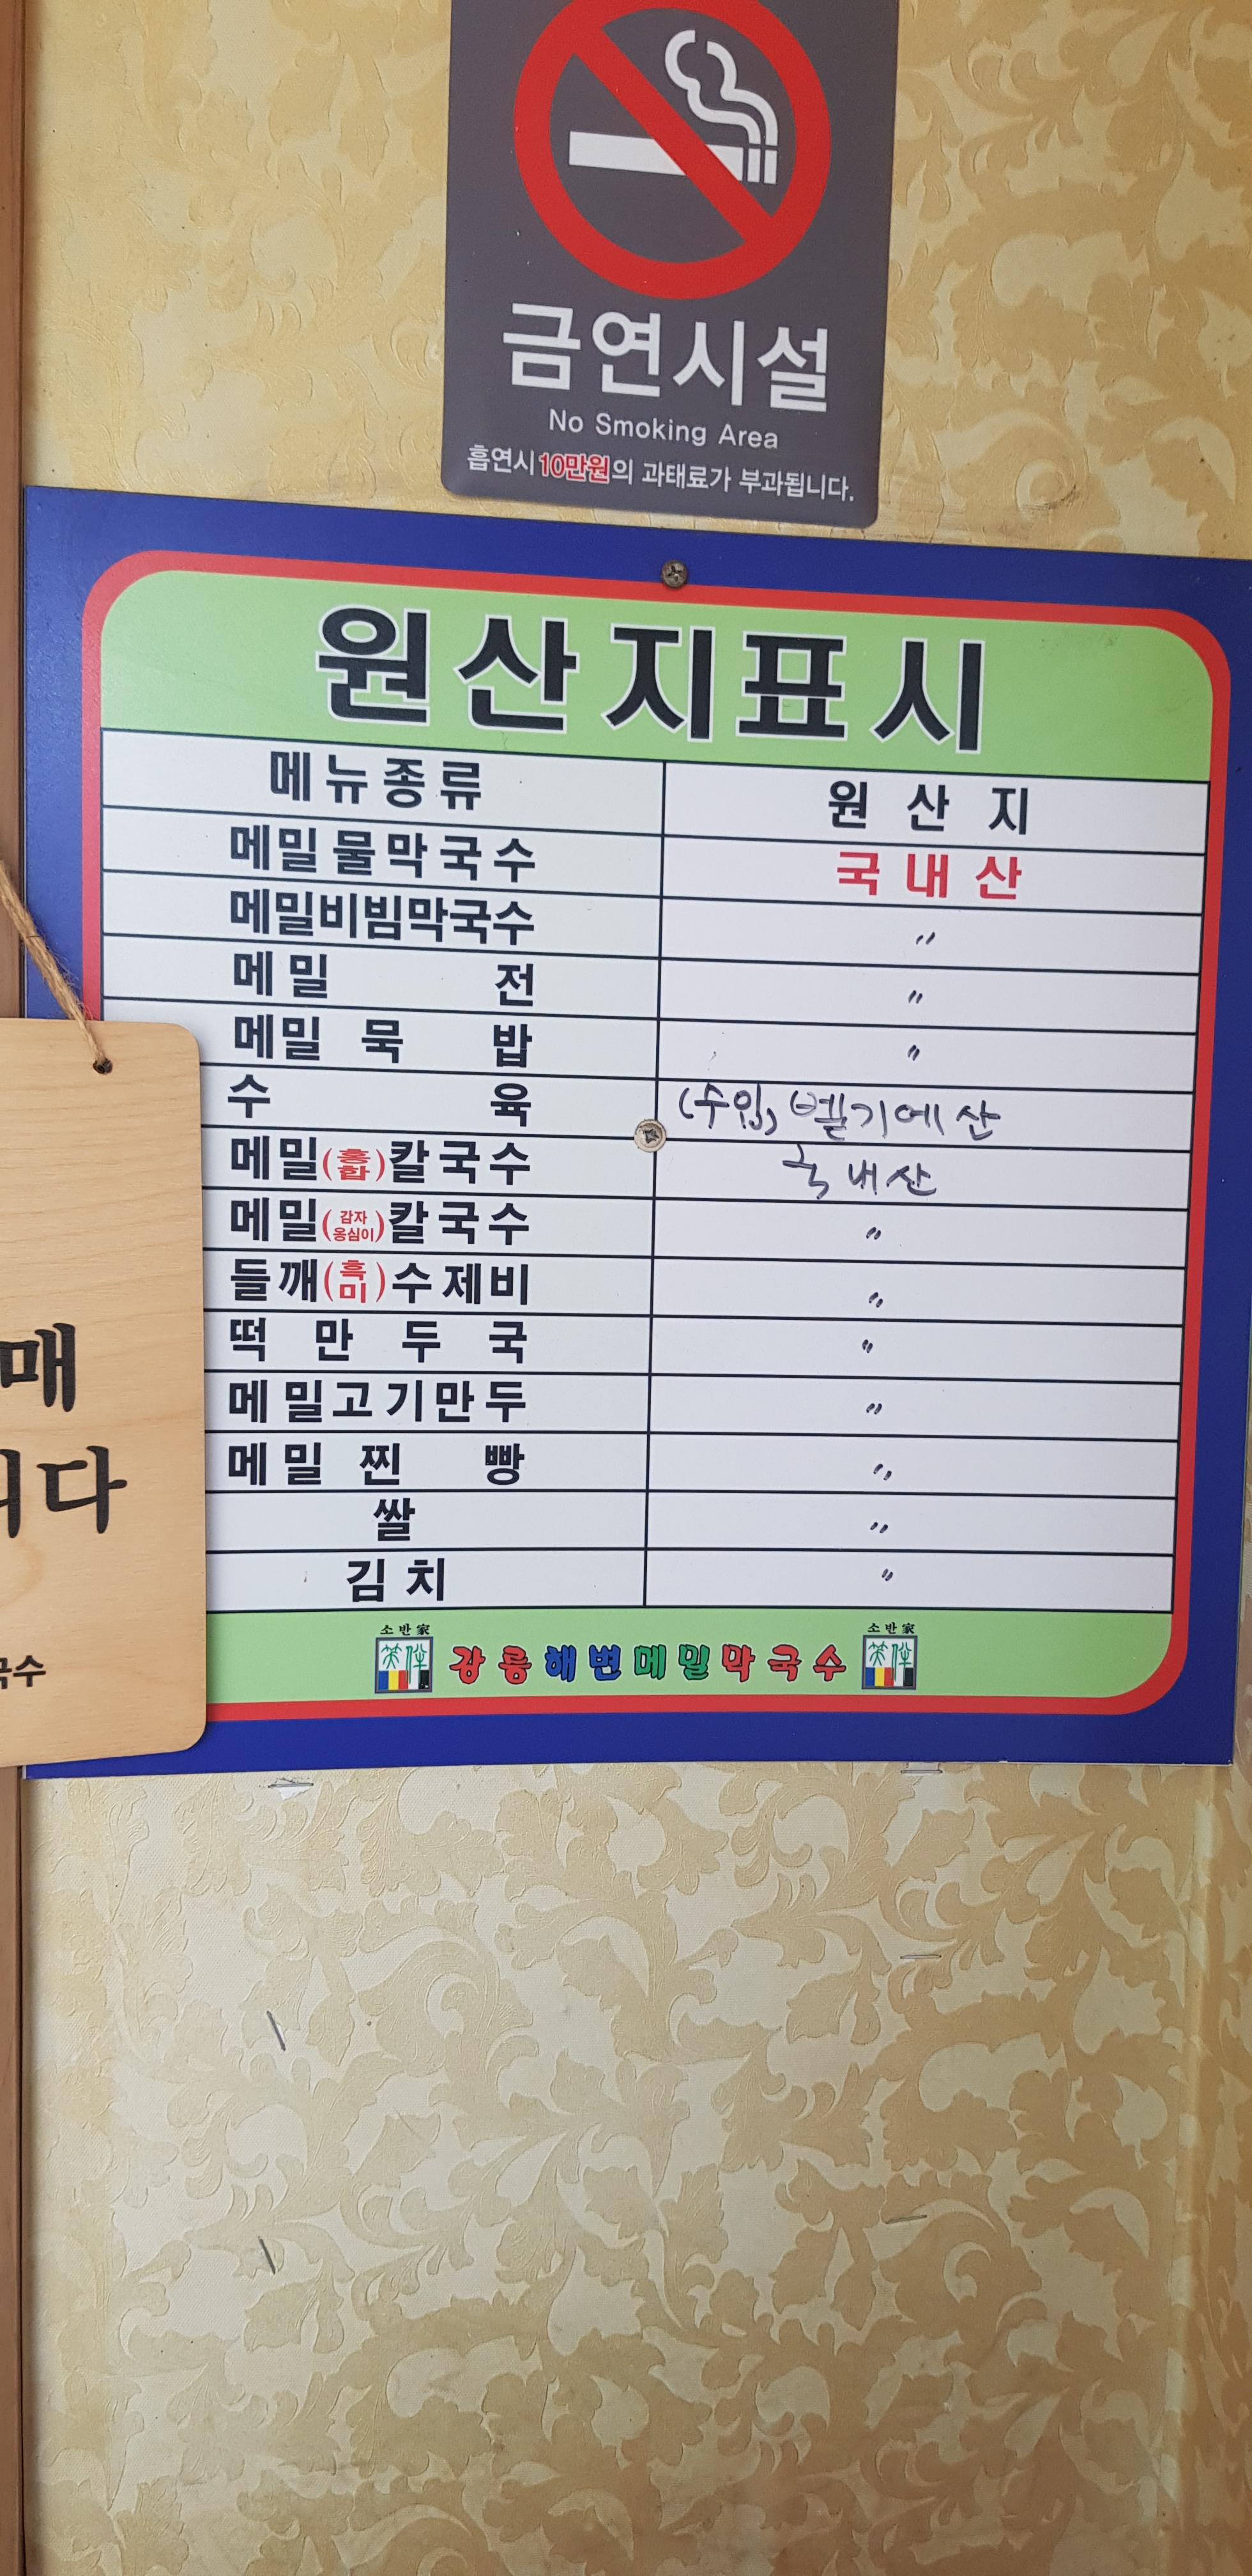 금연시설
No Smoking Area
흡연시 10만원의 과태료가 부과됩니다.
원산지표시
메뉴종류 원산지
메밀물막국수 국내산
메밀비빔막국수 〃
메밀전 〃
메밀묵밥 〃
수육 (수입) 벨기에산
메밀(홍합)칼국수 국내산
메밀(감자옹심이)칼국수 〃
들깨(흑미)수제비 〃
떡만두국 〃
메밀고기만두 〃
메밀찐빵 〃
쌀 〃
김치 〃
소반家 강릉해변메밀막국수 소반家
매
니다
국수